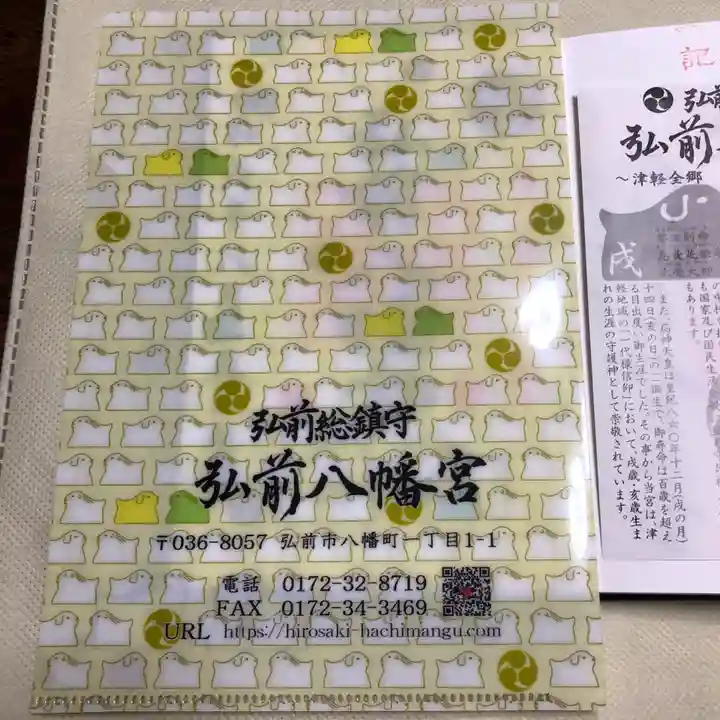 弘前総鎮守
弘前八幡宮
〒036-8057 弘前市八幡町一丁目1-1
電話 0172-32-8719
FAX 0172-34-3469
URL https://hirosaki-hachimangu.com
記
弘前
弘前
～津軽全郷
戌
も国家及び国民生活
もあります。
また、応神天皇は皇紀八六〇年十二月(戌の月)
十四日(亥の日)のご誕生で、御寿命は百歳を超え
る目出度い御生涯でした。その事から当宮は、津
軽地域の「一代様信仰」において、戌歳・亥歳生ま
れの生涯の守護神として崇敬されています。